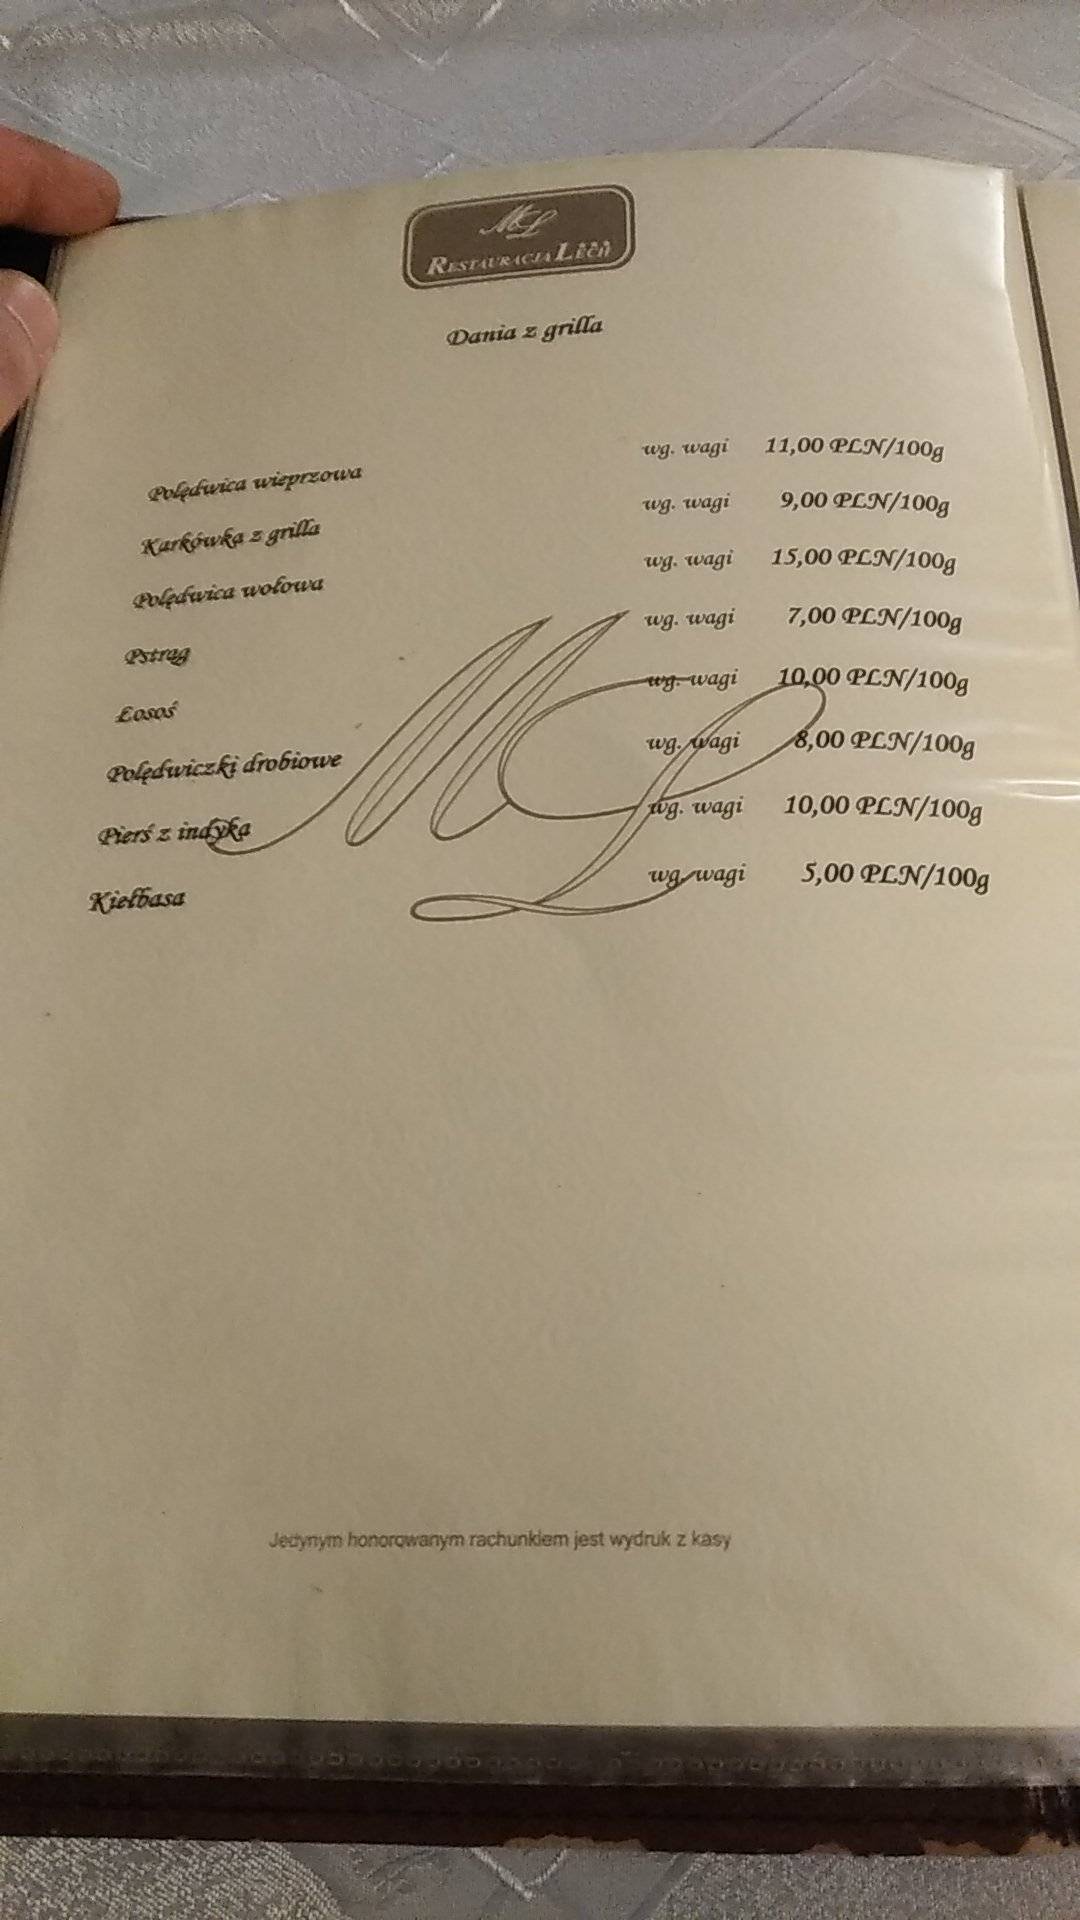 ML
RESTAURACJA LECH
Dania z grilla
Polędwica wieprzowa wg. wagi 11,00 PLN/100g
Karkówka z grilla wg. wagi 9,00 PLN/100g
Polędwica wołowa wg. wagi 15,00 PLN/100g
Pstrąg wg. wagi 7,00 PLN/100g
Łosoś wg. wagi 10,00 PLN/100g
Polędwiczki drobiowe wg. wagi 8,00 PLN/100g
Pierś z indyka wg. wagi 10,00 PLN/100g
Kiełbasa wg. wagi 5,00 PLN/100g
ML
Jedynym honorowanym rachunkiem jest wydruk z kasy